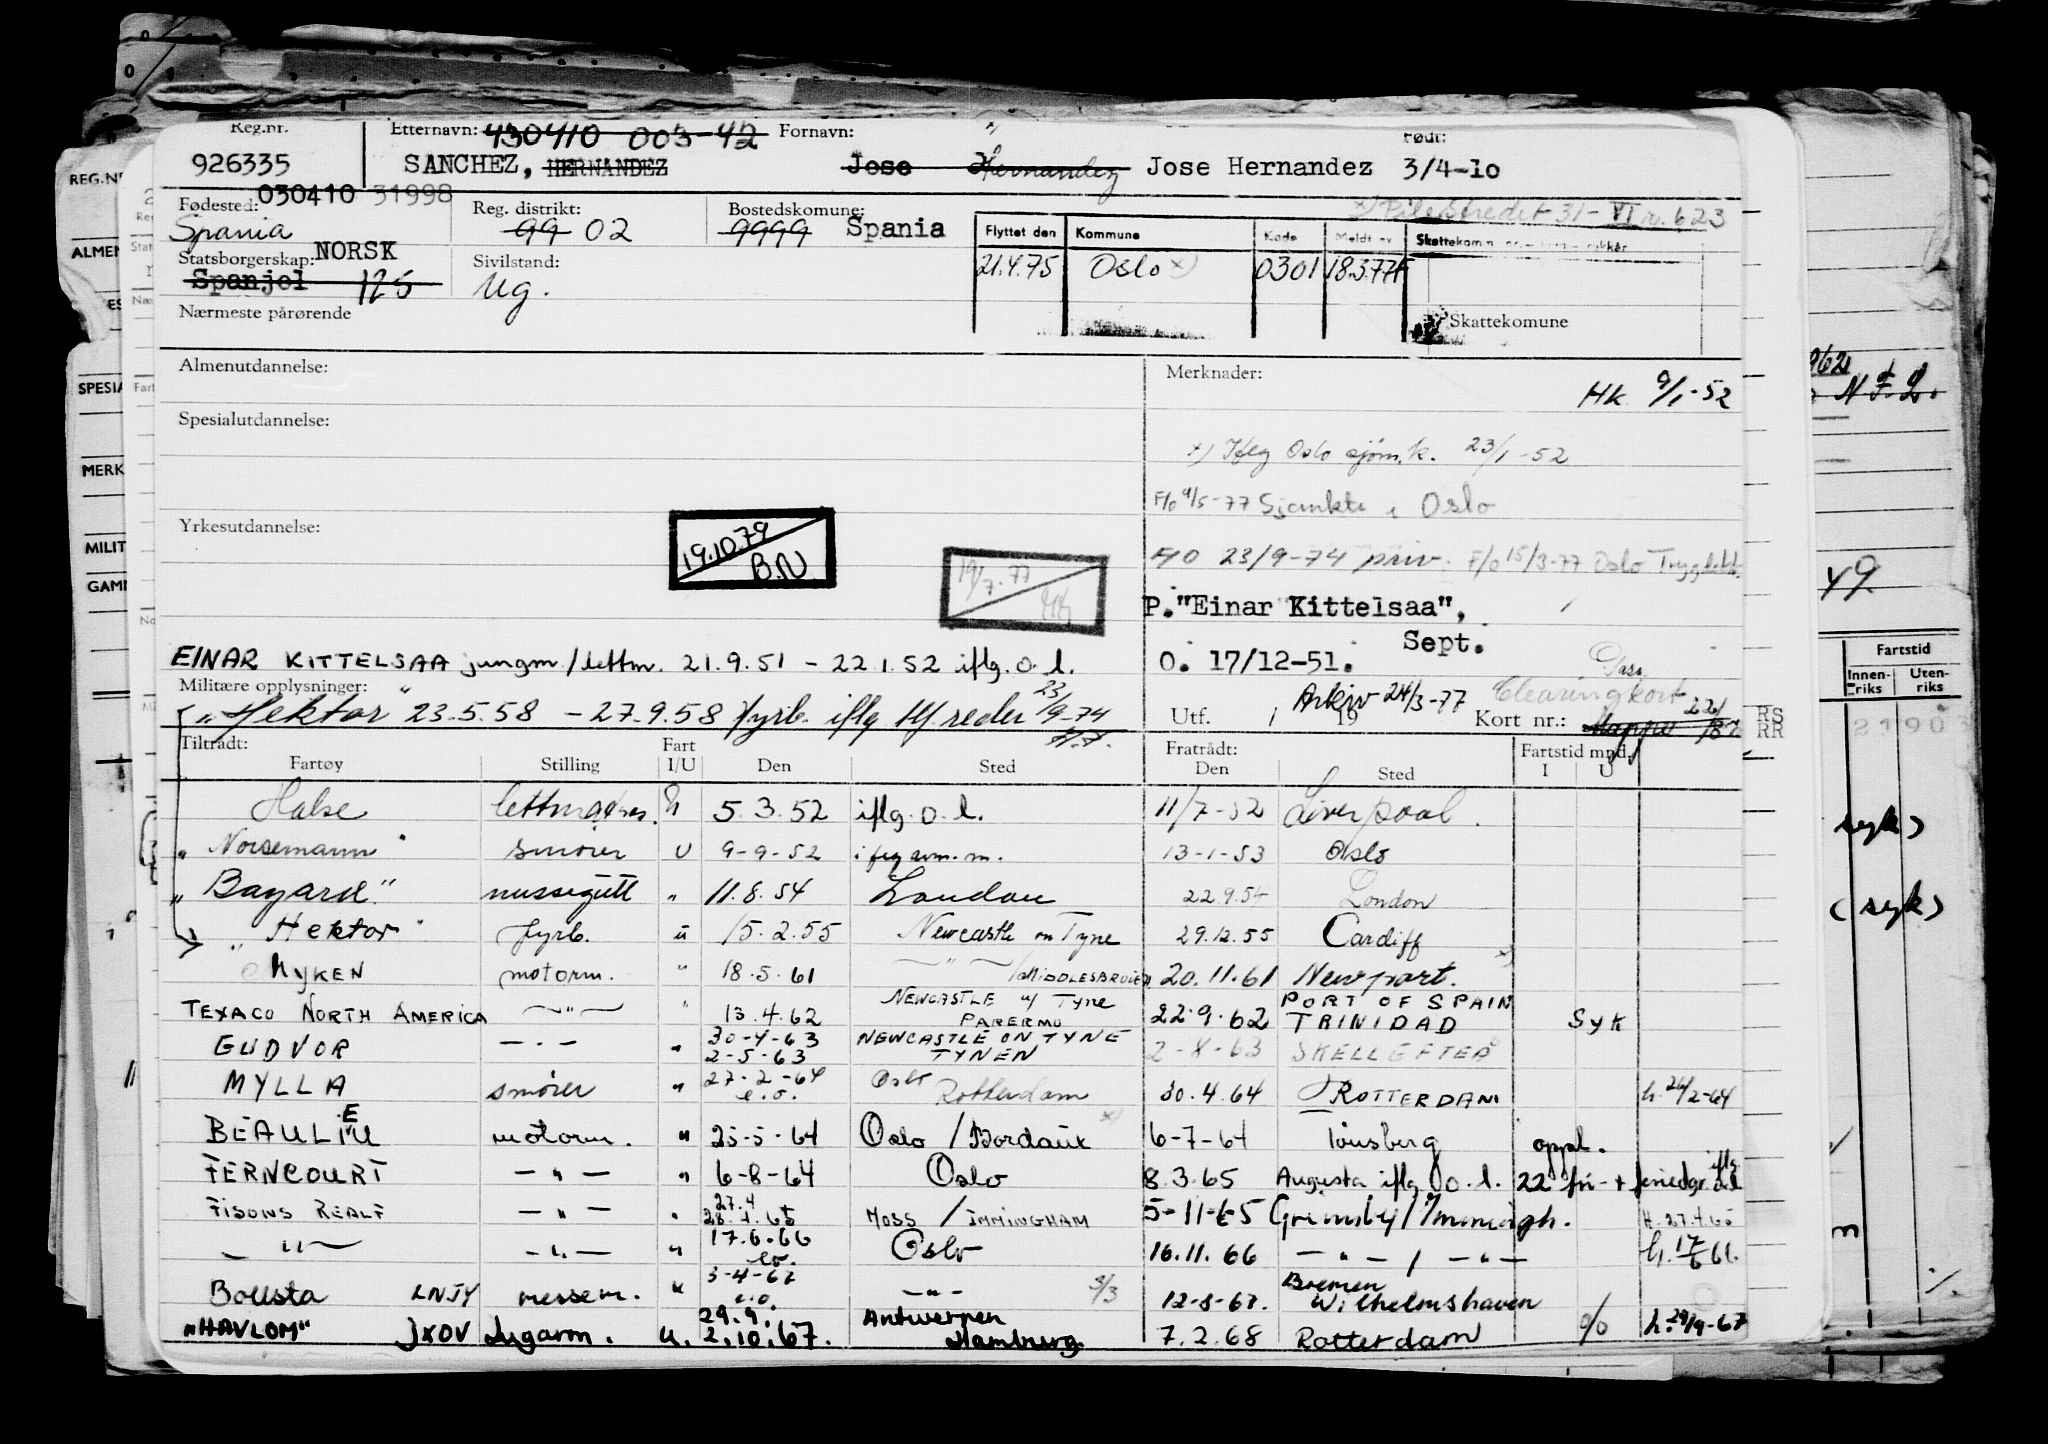 Reg.nr. Etternavn: 430410 005-42 Fornavn: Født:
926335 SANCHEZ, HERNANDEZ Jose Hernandez Jose Hernandez 3/4-10
030410 31998
Fødested: Reg. distrikt: Bostedskomune: Pilestredet 31-VI r. 623
Spania 99 02 9999 Spania
Flyttet den Kommune Kode Meldt av
Statsborgerskap: NORSK Sivilstand:
Spanjol 125 Ug. 21.4.75 Oslo x) 0301 18.3.77F
Nærmeste pårørende Skattekomune
Almenutdannelse: Merknader:
Hk 9/1-52
Spesialutdannelse:
x) Ifølg Oslo sjøm.k. 23/1-52
F/o 9/5-77 Sjømktr i Oslo
Yrkesutdannelse:
19.10.79 B.N
19/7.77
F/O 23/9-74 priv. F/o 15/3-77 Oslo
P. "Einar Kittelsaa",
Sept.
O. 17/12-51.
EINAR KITTELSAA jungm/lettm. 21.9.51 - 22.1.52 iflg. o.l.
Militære opplysninger:
Arkiv 24/3-77 Clearingkort
"Hektor" 23.5.58 - 27.9.58 fyrb. iflg. reder 23/9-74
Utf. / 19 Kort nr.: Mappe
RS
RR
Tiltrådt: Fart Fratrådt: Fartstid mnd.
Fartøy Stilling I/U Den Sted Den Sted I U
Halse 5.3.52 iflg. o.l. 11/7-52 Liverpool.
"Norsemann" smører U 9-9-52 13-1-53 Oslo
"Bayard" messegutt " 11.8.54 London 22.9.54 London
"Hektor" fyrb. u 15.2.55 Newcastle on Tyne 29.12.55 Cardiff
MYKEN motorm. " 18.5.61 —"— /MIDDLESBROUGH 20.11.61 Newport.
TEXACO NORTH AMERICA —"— " 13.4.62 NEWCASTLE u/ Tyne PARERMO 22.9.62 PORT OF SPAIN TRINIDAD SYK
GUDVOR —"— " 30-4-63 2-5-63 NEWCASTLE ON TYNE TYNEN 2-8-63 SKELLEFTEÅ
MYLLA smører " 27-2-64 e.o. Oslo Rotterdam 30.4.64 ROTTERDAM h. 26/2-64
BEAULIEU motorm. " 25-5-64 Oslo / Bordaux 6-7-64 Tønsberg oppl.
FERNCOURT —"— " 6-8-64 Oslo 8.3.65 Augusta iflg o.l. 22 fri- + feriedgr. iflg o.l.
FISONS REALF —"— " 27.4 28.4.65 MOSS / IMMINGHAM 5-11-65 Grimsby/Immingh. H. 27.4.65
—"— —"— " 17.6.66 e.o. Oslo 16.11.66 —"— / —"— h. 17/6 66.
Bollsta LNJY messem. " 3-4-67 e.o. —"— 3/3 12-8-67. Bremen Wilhelmshaven
"HAVLOM" JXOV Lugarm. u. 29.9. 2.10.67. Antwerpen Hamburg. 7.2.68 Rotterdam o/o h. 29/9-67
REG.NR
ALMEN
SPESIA
MERK
MILIT
GAM
49.
Fartstid
Innen-riks Uten-riks
21903
syk)
(syk)